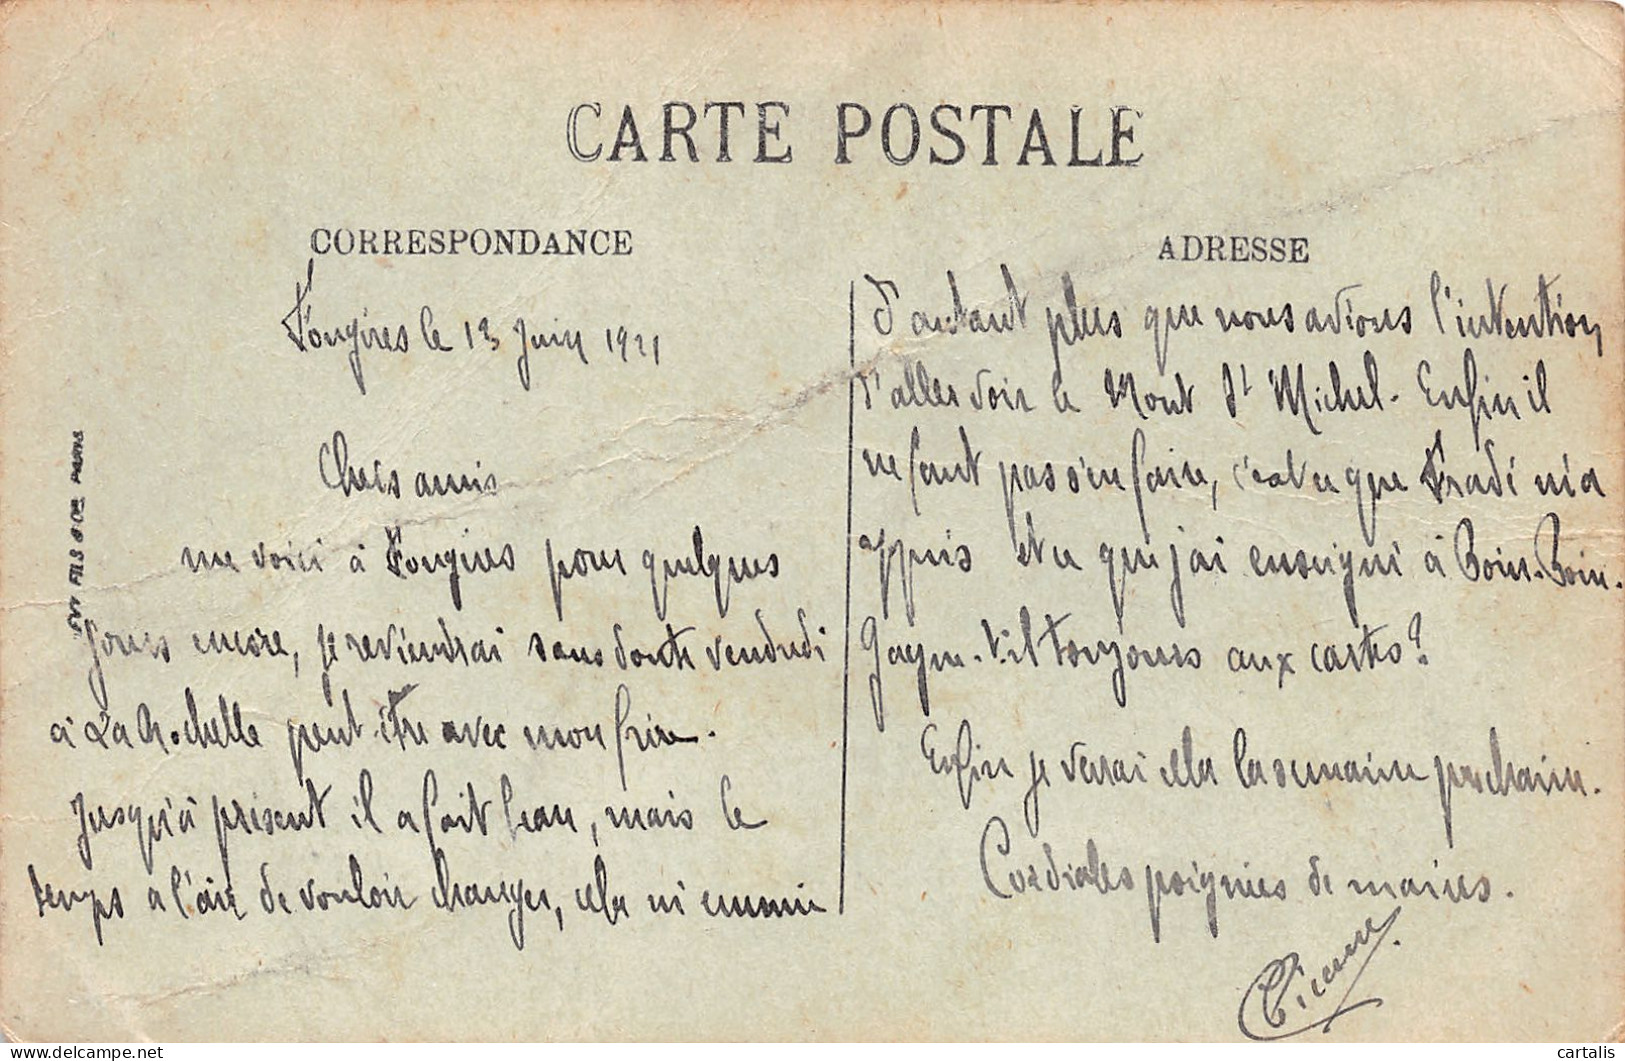 CARTE POSTALE
CORRESPONDANCE
Fougères le 13 Juin 1921
Chers amis
me voici à Fougères pour quelques
jours encore, je reviendrai sans doute vendredi
à La Rochelle peut-être avec mon frère.
Jusqu'à présent il a fait beau, mais le
temps a l'air de vouloir changer, cela m'ennuie
ADRESSE
d'autant plus que nous avions l'intention
d'aller voir le Mont St Michel. Enfin il
ne faut pas s'en faire, c'est ce que m'a
appris et ce que j'ai enseigné à Boin-Boin.
Gagne-t-il toujours aux cartes?
Enfin je verrai cela la semaine prochaine.
Cordiales poignées de mains.
FILS & CIE PARIS
cartalis